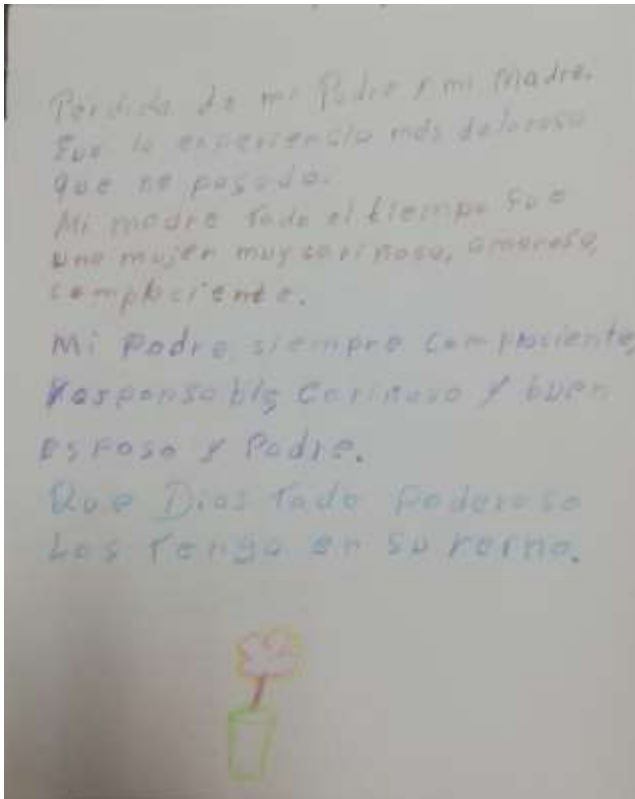 Pérdida de mi Padre y mi Madre.
Fue la experiencia más dolorosa
que he pasado.
Mi madre todo el tiempo fue
una mujer muy cariñosa, amorosa,
complaciente.
Mi Padre siempre complaciente,
Responsable Cariñoso y buen
esposo y Padre.
Que Dios Todo Poderoso
Los Tenga en su reino.